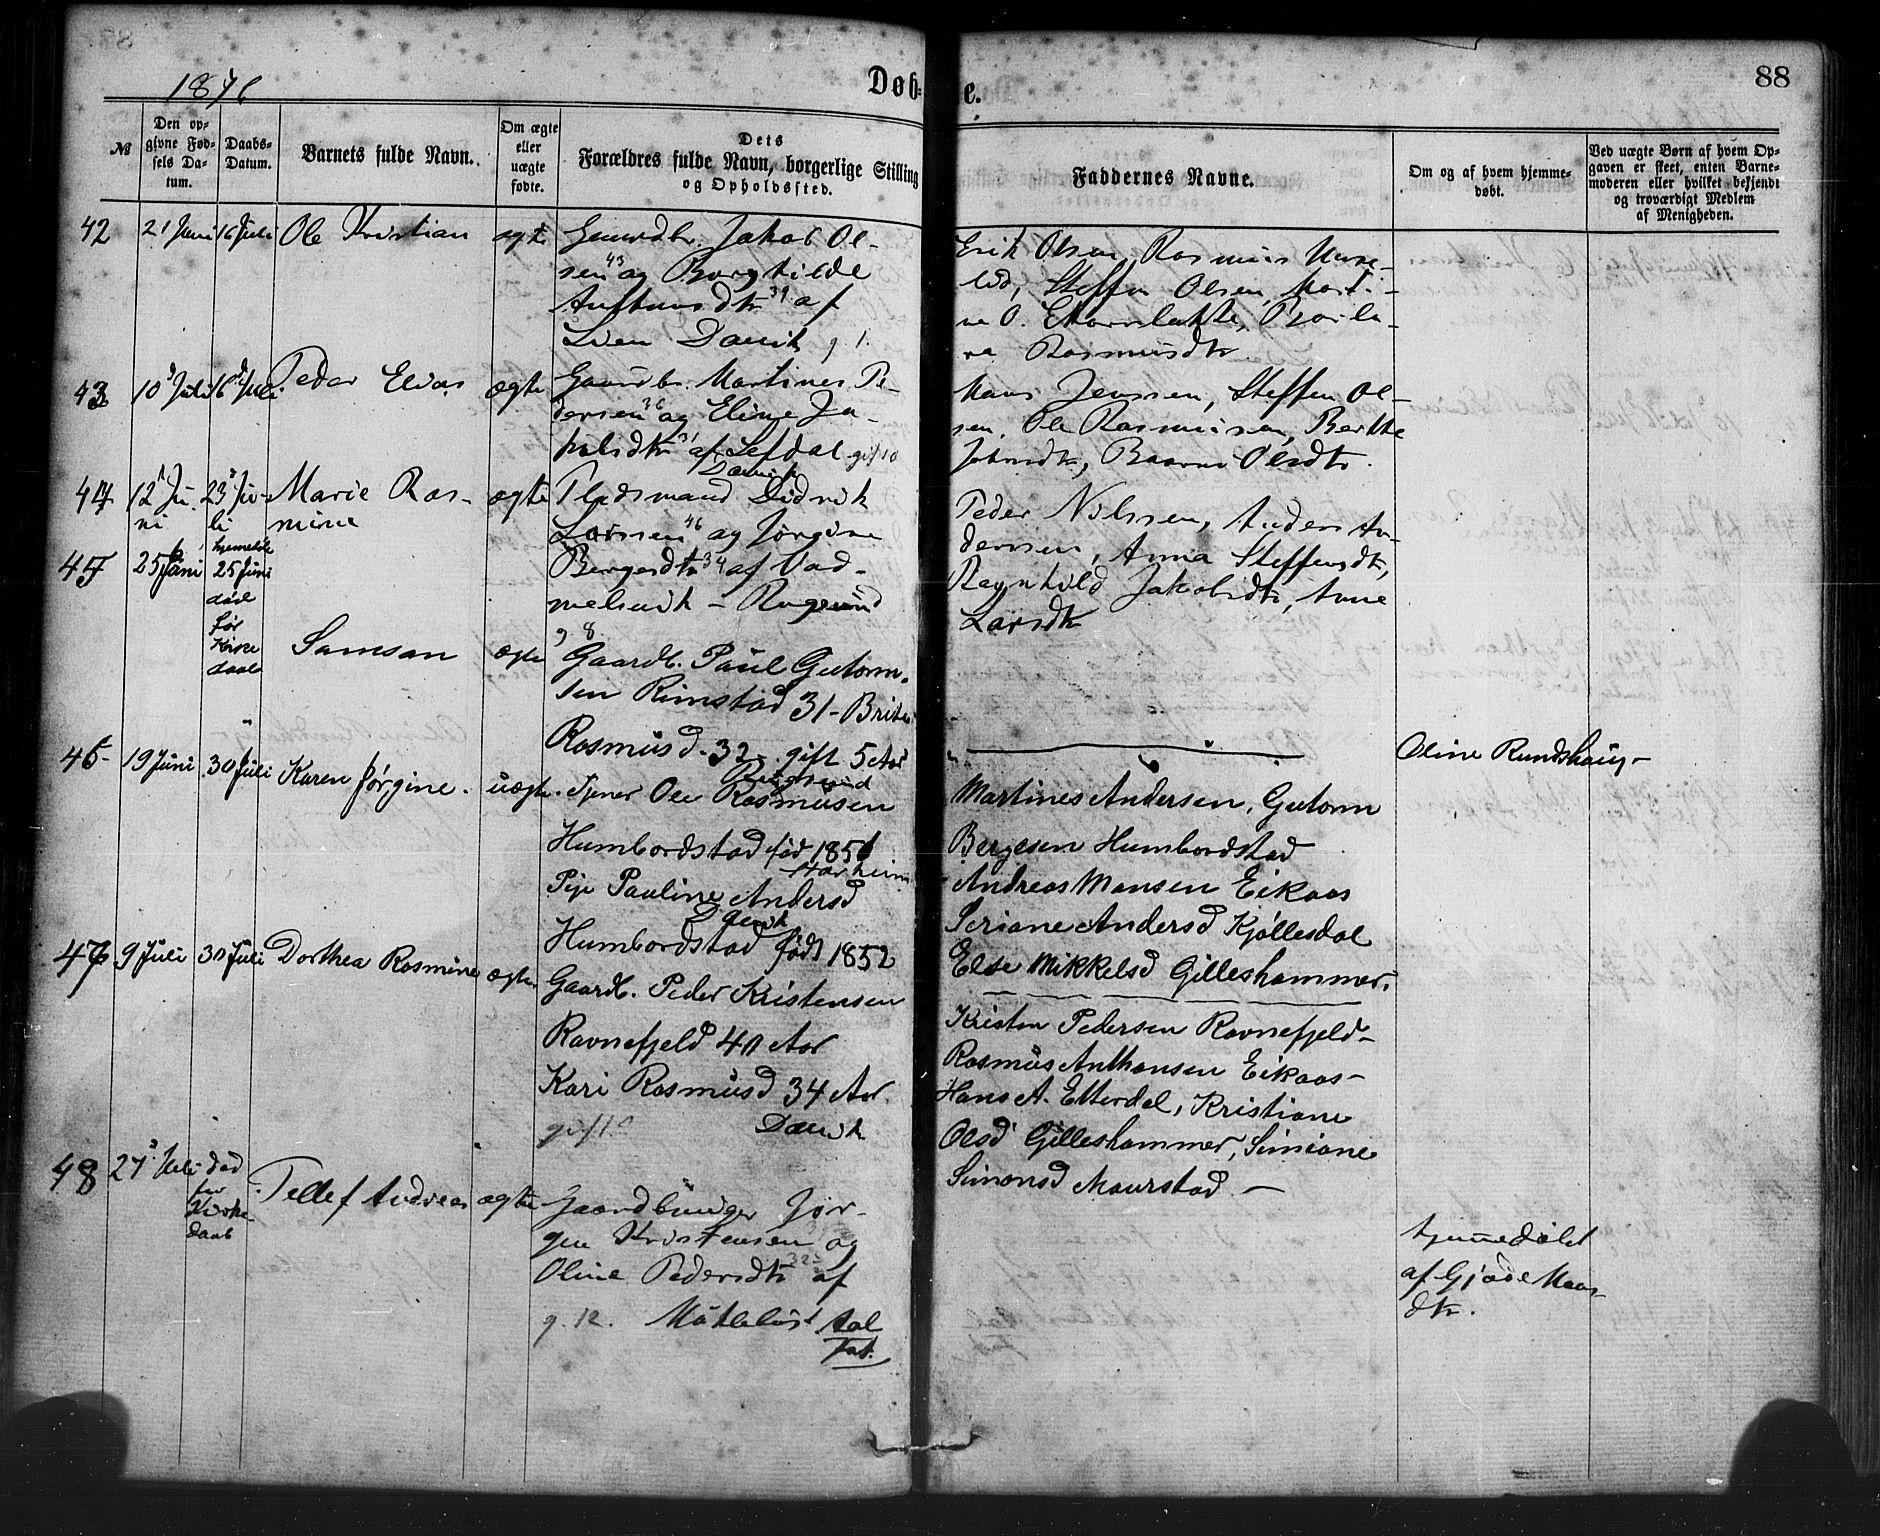 1876
Døb-
e.
88
№
Den op-
givne Fød-
sels Da-
tum.
Daabs-
Datum.
Barnets fulde Navn.
Om ægte
eller
uægte
fødte.
Dets
Forældres fulde Navn, borgerlige Stilling
og Opholdssted.
Faddernes Navne.
Om og af hvem hjemme-
døbt.
Ved uægte Børn af hvem Op-
gaven er skeet, enten Barne-
moderen eller hvilket bekjendt
og troværdigt Medlem
af Menigheden.
42 21 Juni 16 Juli Ole Kristian ægte
Gaardbr. Jakob Ol-
sen 43 og Borghilde
af
Lien Davik g 1.
Erik Olsen, Rasmus
Steffen Olsen, Marti-
ne O.
Rasmusdtr
43 10 Juli 16 Juli Peder Elias ægte
Gaardbr. Martines Pe-
dersen 36 og Eline Ja-
kobsdtr 31 af Lefdal gift 10
Davik
Hans Jenssen, Steffen Ol-
sen, Ole Rasmussen, Berthe
Johnsdtr, Olsdtr.
44 12 Ju-
ni 23 Ju-
li Marie Ras-
mine ægte
Pladsmand Didrik
Larssen 46 og Jørgine
Bergesdtr 34 af Vad-
melsvik - Rugsund
g. 8.
Peder Nilssen, Anders An-
derssen, Anna Steffensdtr,
Ragnhild Jakobsdtr, Anne
Larsdtr
45 25 Juni hjemedøbt
25 Juni
død
før
Kirke
daab
Samson ægte
Gaardb. Paul Guttorm-
sen Rimstad 31 - Brite
Rasmusd - 32 - gift 5 Aar
Rugsund
Oline Rundshaug -
46 19 Juni 30 Juli Karen Jørgine. uægte.
Tjener Ole Rasmusen
Humbordstad fød 1851
Pige Pauline Andersd
Humbordstad født 1852
Davik
Martines Andersen, Gutorm
Bergesen Humbordstad
Andreas Monsen Eikaas
Seriane Andersd Kjøllesdal
Else Mikkelsd Gilleshammer.
47 9 Juli 30 Juli Dorthea Rasmine ægte.
Gaardb. Peder Kristensen
Ravnefjeld 40 Aar
Kari Rasmusd 34 Aar.
gift 10 Davik
Kristen Pedersen Ravnefjeld -
Rasmus Anthonsen Eikaas -
Hans A. Etterdal, Kristiane
Olsd Gilleshammer, Simiane
Simonsd Maurstad -
48 27 Juli død
før
Kirke-
daab
Tellef Andreas ægte
Gaardbruger Jør-
gen Kristensen og
Oline Pedersdtr 32 af
g. 12.
hjemmedøbt
af Gjøde Mons-
dtr.